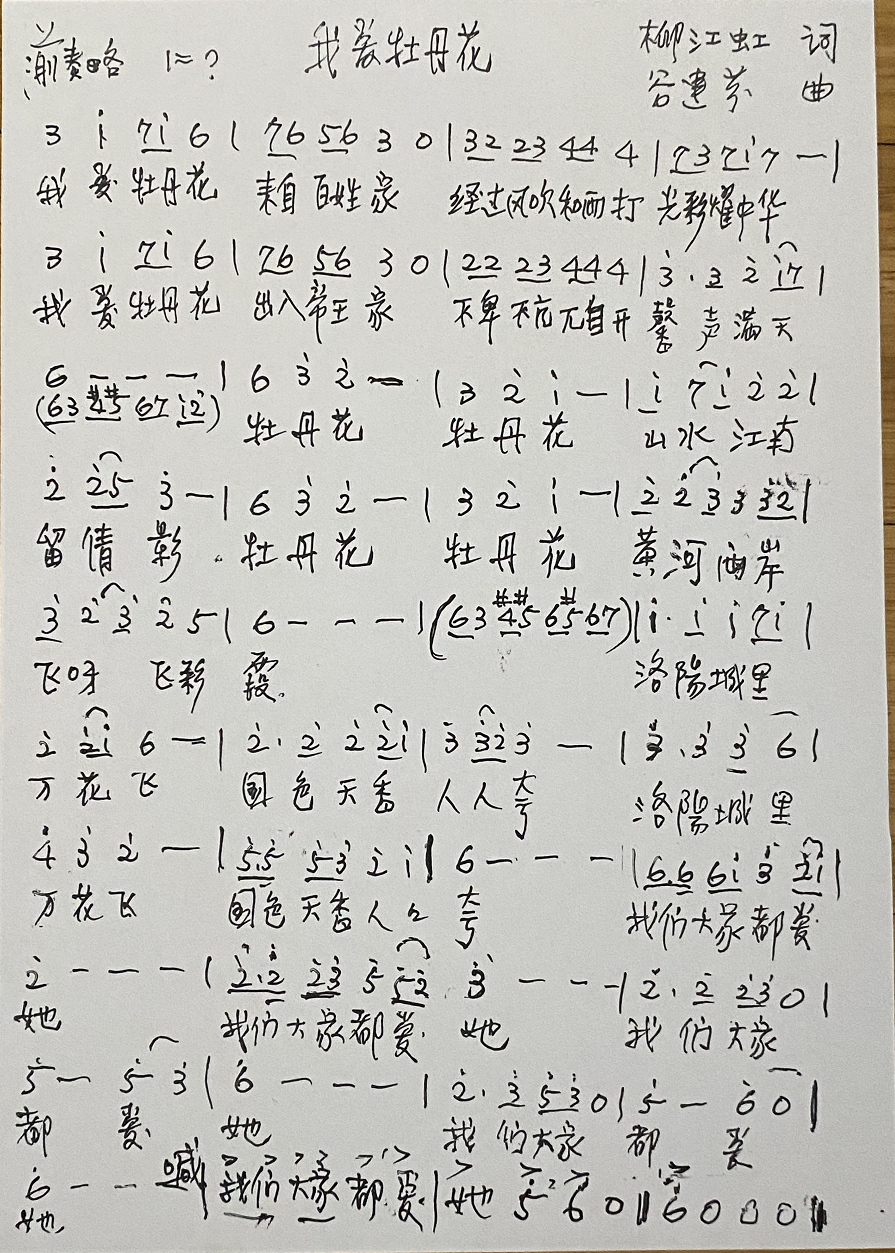 前奏略 1=? 我爱牡丹花 柳江虹 词
谷建芬 曲
3 i 7i 6 | 76 56 3 0 | 32 23 44 4 | 7371 7 — |
我 爱 牡丹花 来自 百姓 家 经过风吹和雨打 光彩耀中华
3 i 7i 6 | 76 56 3 0 | 22 23 44 4 | 3 . 3 2 i7 |
我 爱 牡丹花 出入帝王 家 不卑 不亢 自开 馨 声 满 天
6 — — — | 6 3 2 — | 3 2 i — | i 7 i 2 2 |
(63 #4#5 67 i2)
牡丹花 牡丹花 山水 江南
2 25 3 — | 6 3 2 — | 3 2 i — | 2 2 3 3 32 |
留 倩 影 牡丹花 牡丹花 黄河 两岸
3 2 3 2 5 | 6 — — — | (63 #4#5 6#5 67) | i . i i 7i |
飞呀 飞彩 霞 洛阳城里
2 2i 6 — | 2 . 2 2 2i | 3 323 — | 3 . 3 3 6 |
万 花 飞 国 色 天 香 人人 夸 洛阳城里
4 3 2 — | 5.5 53 2 i | 6 — — — | 6.6 6i 3 2i |
万花飞 国色 天香 人人 夸 我们大家都爱
2 — — — | 2.2 23 5 52 | 3 — — — | 2 . 2 23 0 |
她 我们大家都爱 她 我 们大家
5 — 5 3 | 6 — — — | 2 . 3 53 0 | 5 — 6 0 |
都 爱 她 我 们大家 都 爱
6 — — 喊 | 我们 大家 都 爱 | 她 5 6 0 | 6 0 0 0 ‖
她